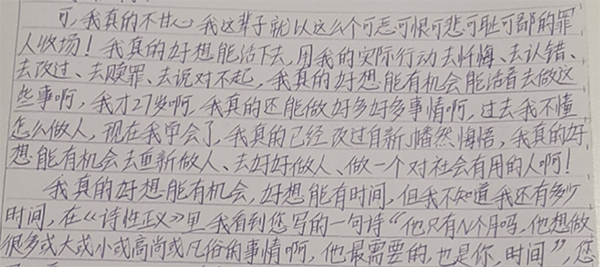 可,我真的不甘心我这辈子就以这么个可恶可恨可悲可耻可鄙的罪
人收场!我真的好想能活下去,用我的实际行动去忏悔、去认错、
去改过、去赎罪、去说对不起,我真的好想能有机会能活着去做这
些事啊,我才27岁啊,我真的还能做好多好多事情啊,过去我不懂
怎么做人,现在我学会了,我真的已经改过自新,幡然悔悟,我真的好
想能有机会去重新做人、去好好做人、做一个对社会有用的人啊!
我真的好想能有机会,好想能有时间,但我不知道我还有多少
时间,在《诗性正义》里我看到您写的一句诗“他只有N个月吗,他想做
很多或大或小或高尚或凡俗的事情啊,他最需要的,也是你,时间”,您